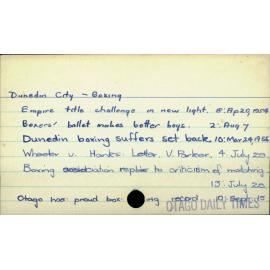 Dunedin City - Boxing
Empire title challenge in new light. 8: Ap 29, 1954
Boxers' ballet makes better boys. 2: Aug 7
Dunedin boxing suffers set back 10: Mar 29, 1955
Wheeler v. Hanks: Letter, V. Parker, 4: July 20
Boxing association replies to criticism of matching
13: July 20
Otago has proud boxing record 10: Sept 15
OTAGO DAILY TIMES